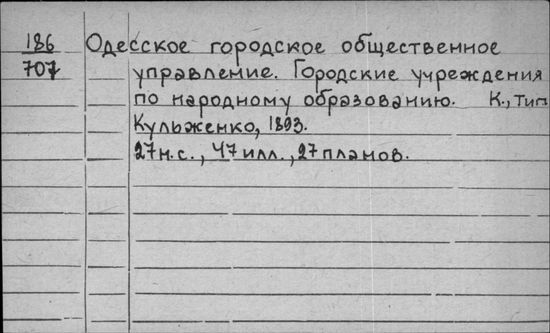 186 Одесское городское общественное
707 управление. Городские учреждения
по народному образованию. К., Тип
Кульженко, 1893.
27 н.с., 47 илл., 27 планов.